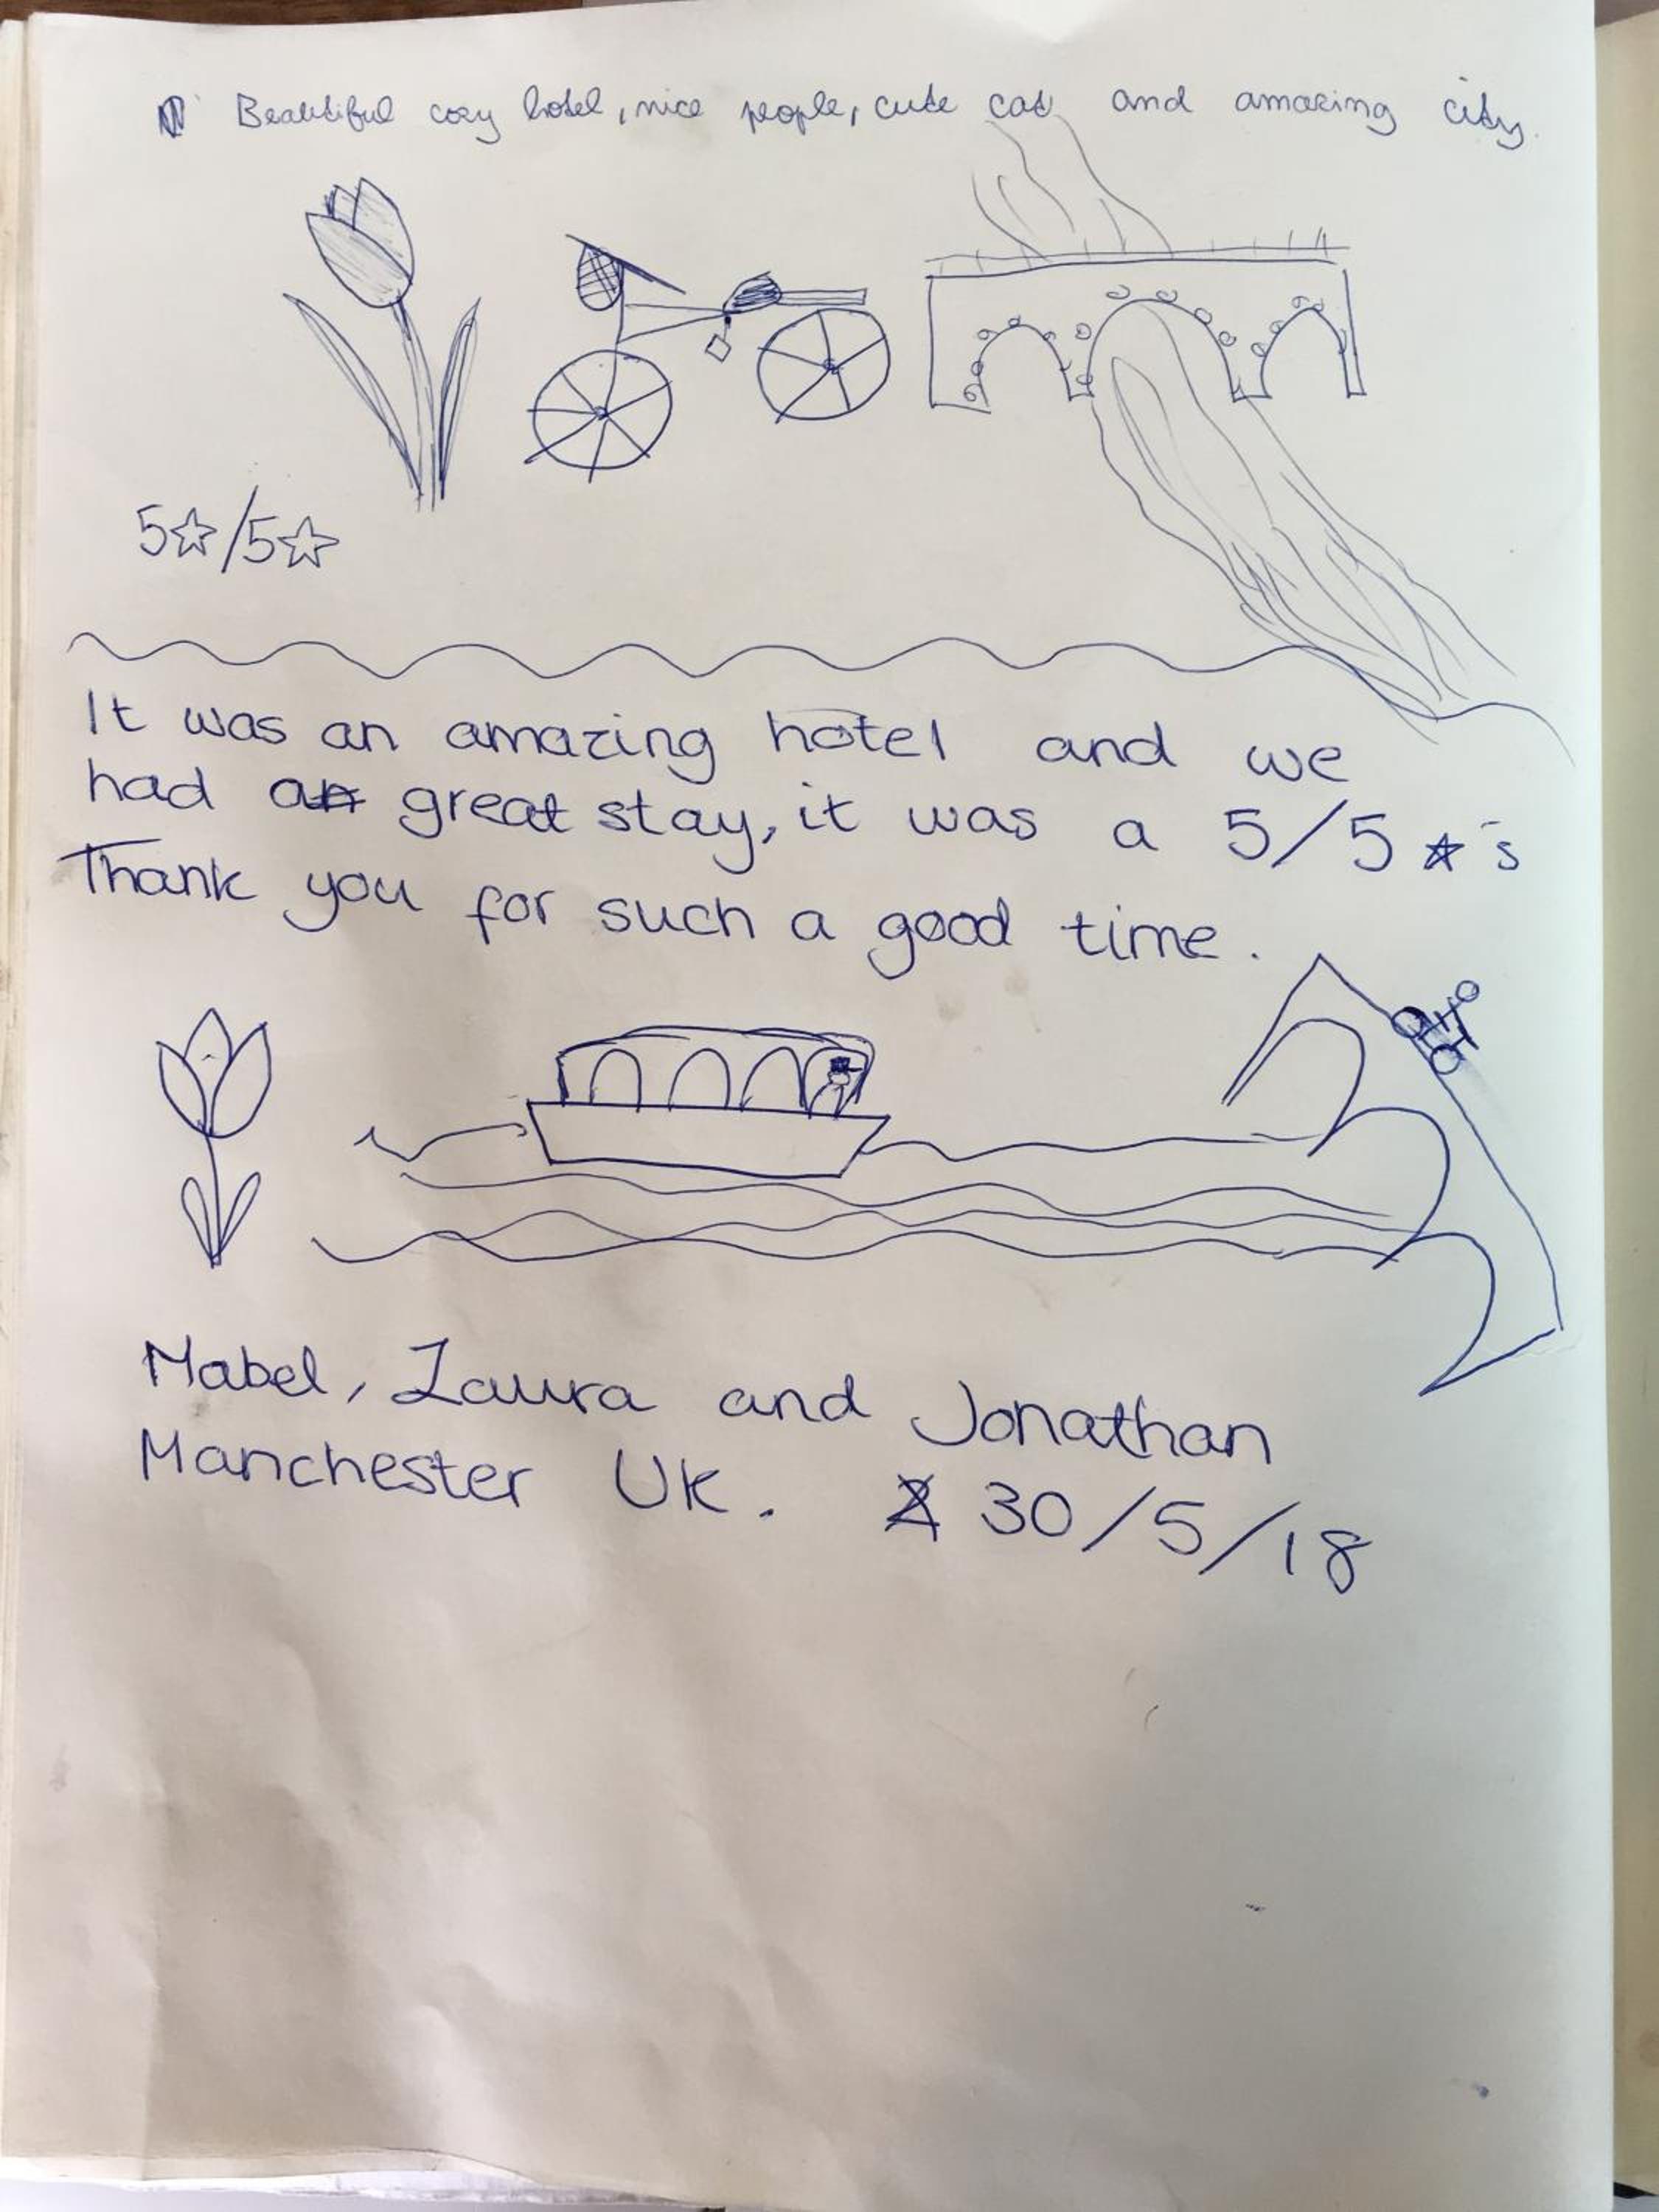 Beautiful cozy hotel, nice people, cute cat and amazing city.
5☆/5☆
It was an amazing hotel and we
had a great stay, it was a 5/5 ☆'s
Thank you for such a good time.
Mabel, Laura and Jonathan
Manchester UK. 30/5/18